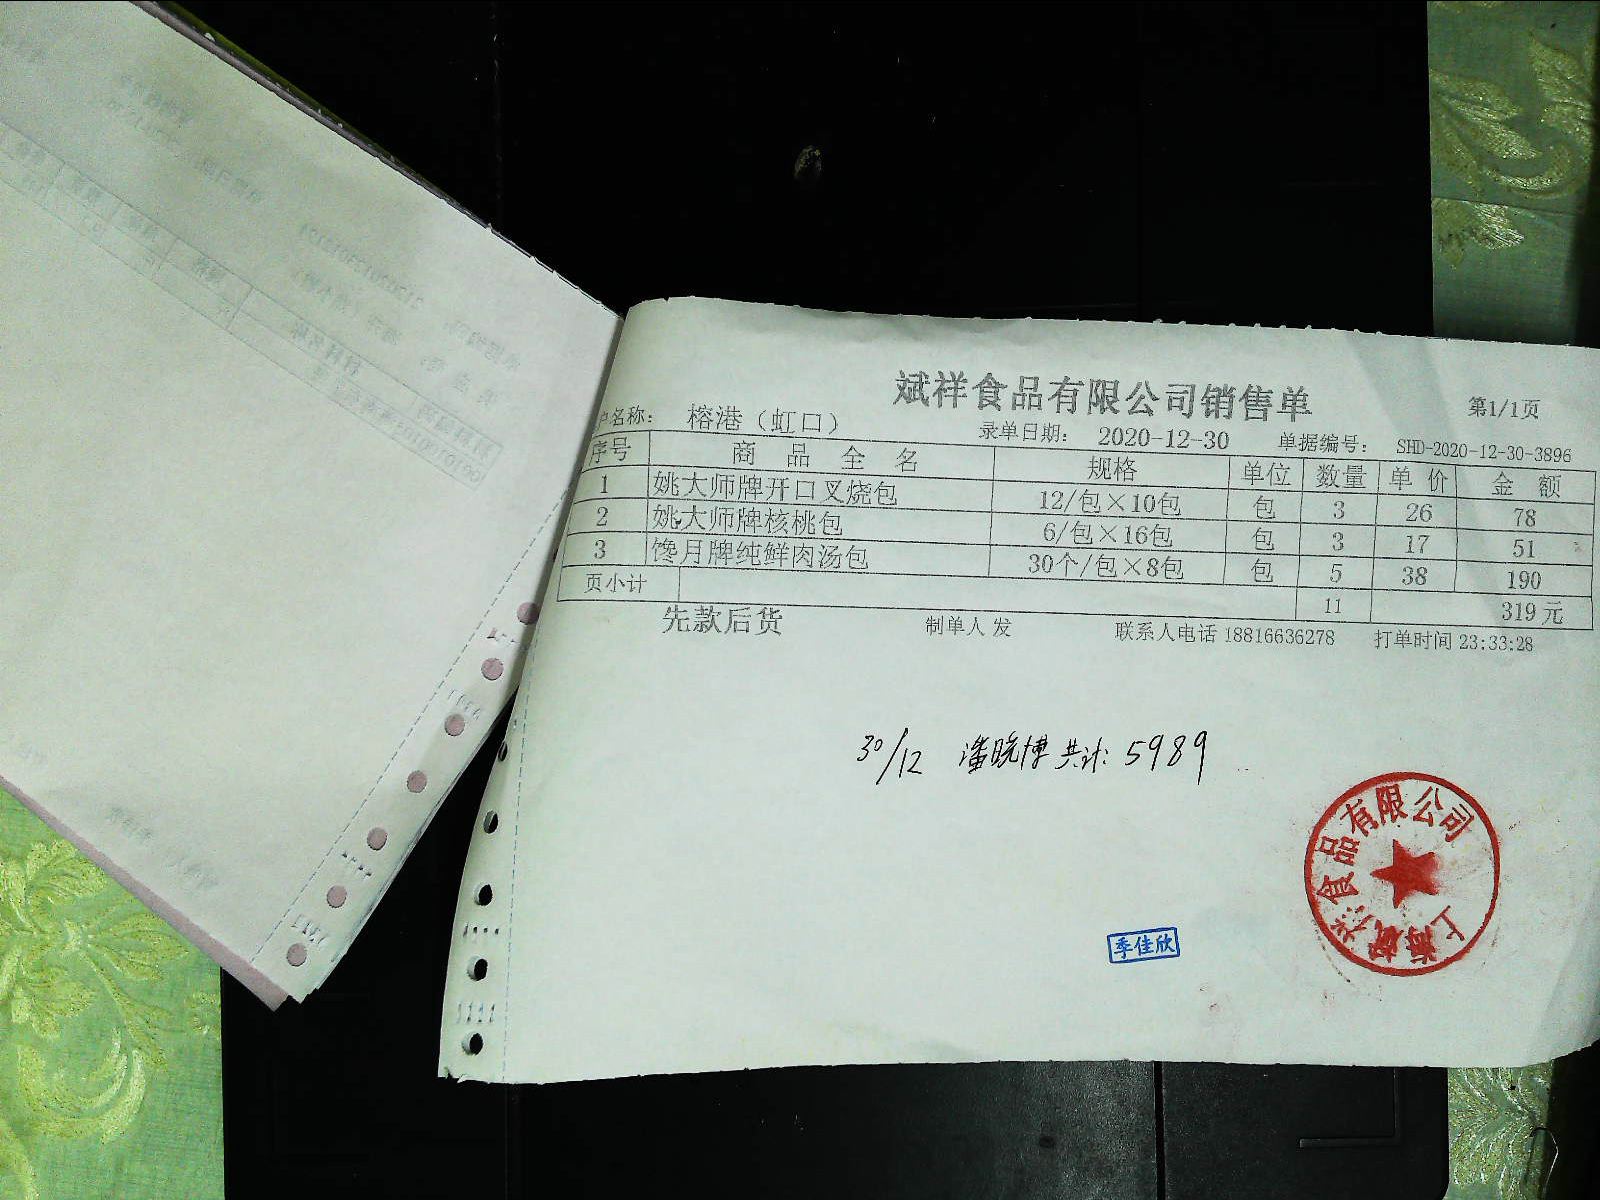 斌祥食品有限公司销售单
第1/1页
户名称： 榕港（虹口） 录单日期： 2020-12-30 单据编号： SHD-2020-12-30-3896
序号 商品全名 规格 单位 数量 单价 金额
1 姚大师牌开口叉烧包 12/包×10包 包 3 26 78
2 姚大师牌核桃包 6/包×16包 包 3 17 51
3 馋月牌纯鲜肉汤包 30个/包×8包 包 5 38 190
页小计 11 319元
先款后货 制单人 发 联系人电话 18816636278 打单时间 23:33:28
30/12 潘晓博 共计: 5989
上海斌祥食品有限公司
季佳欣